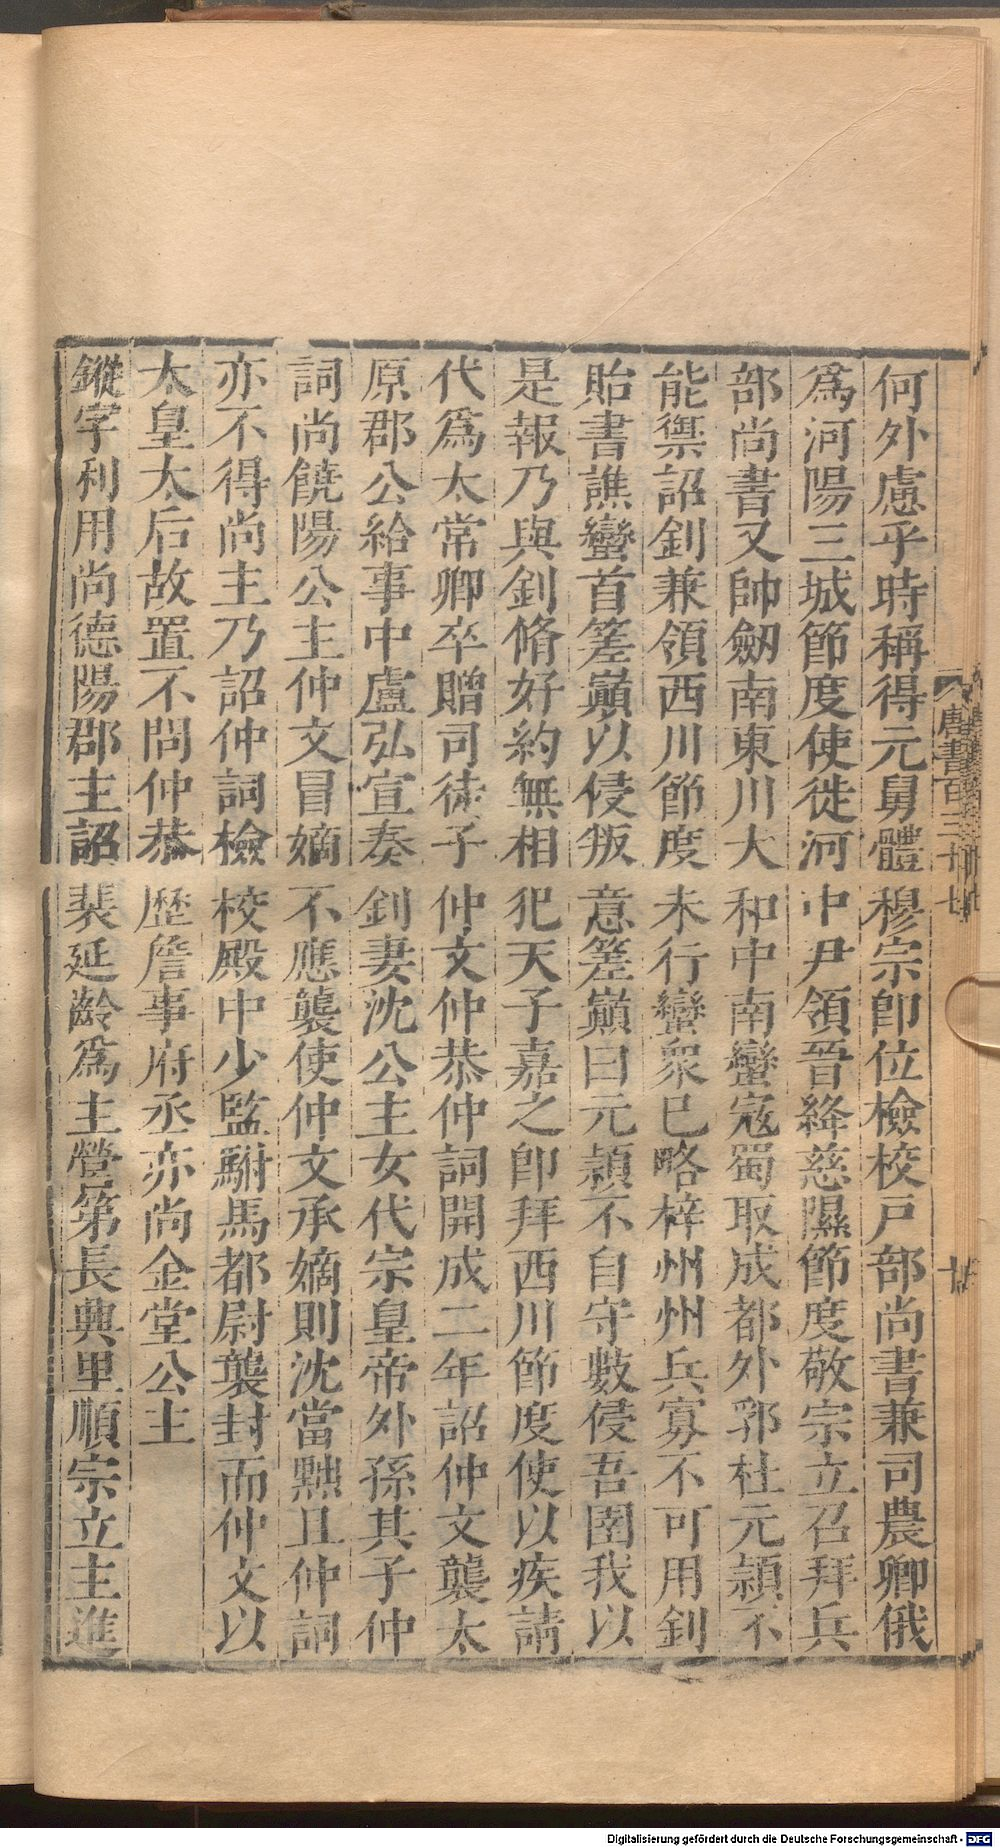 何外慮乎時稱得元舅體穆宗卽位檢校戸部尚書兼司農卿俄
爲河陽三城節度使徙河中尹領晉絳慈隰節度敬宗立召拜兵
部尚書又帥劒南東川大和中南蠻寇蜀取成都外郛杜元穎不
能禦詔釗兼領西川節度未行蠻衆已略梓州州兵寡不可用釗
貽書譙蠻首箠巓以侵叛意箠巓曰元穎不自守數侵吾圉我以
是報乃與釗脩好約無相犯天子嘉之卽拜西川節度使以疾請
代爲太常卿卒贈司徒子仲文仲恭仲詞開成二年詔仲文襲太
原郡公給事中盧弘宣奏釗妻沈公主女代宗皇帝外孫其子仲
詞尚饒陽公主仲文冒嫡不應襲使仲文承嫡則沈當黜且仲詞
亦不得尚主乃詔仲詞檢校殿中少監駙馬都尉襲封而仲文以
太皇太后故置不問仲恭歷詹事府丞亦尚金堂公主
鏦字利用尚德陽郡主詔裴延齡爲主營第長興里順宗立主進
唐書百三十七
Digitalisierung gefördert durch die Deutsche Forschungsgemeinschaft - DFG